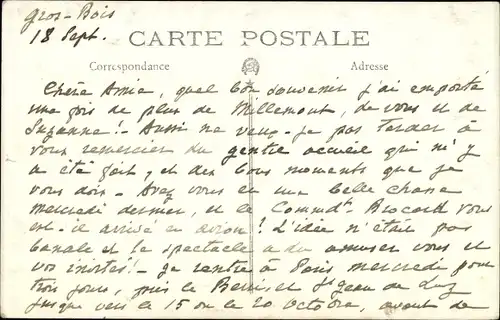 Gros-Bois
18 Sept.
CARTE POSTALE
Correspondance
Adresse
Chère Amie, quel bon souvenir j'ai emporté
une fois de plus de Millemont, de vous et de
Suzanne! Aussi ne veux-je pas tarder à
vous remercier du gentil accueil qui m'y
a été fait, et des bons moments que je
vous dois - Avez vous eu une belle chasse
mercredi dernier, et le Commdt Brocard vous
est-il arrivé en avion? L'idée n'était pas
banale et le spectacle a du amuser vous et
vos invités! - Je rentre à Paris mercredi pour
trois jours, puis le Berri et St Jean de Luz
jusque vers le 15 ou le 20 Octobre, avant de